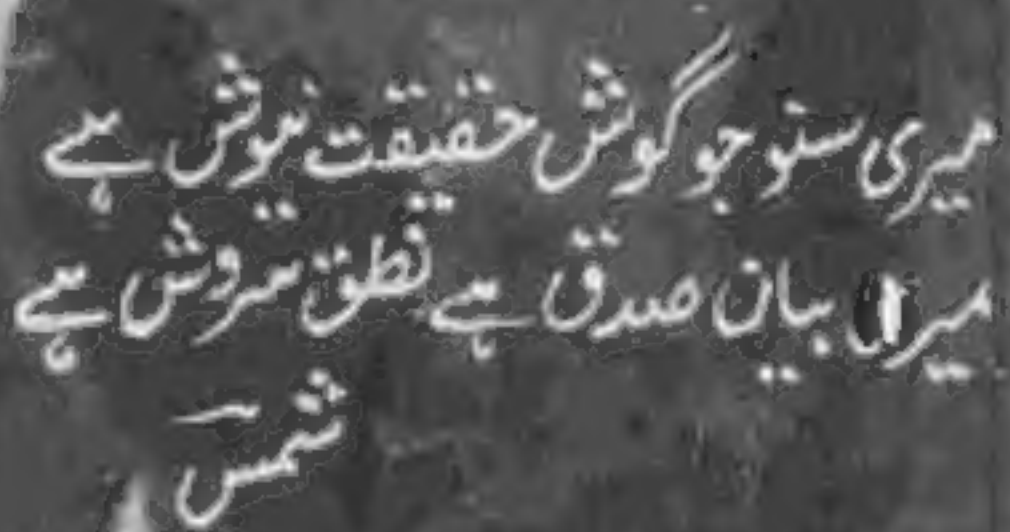 میری سنو جو گوش حقیقت نیوش ہے
میرا بیان صدق ہے نطق سروش ہے
شمس